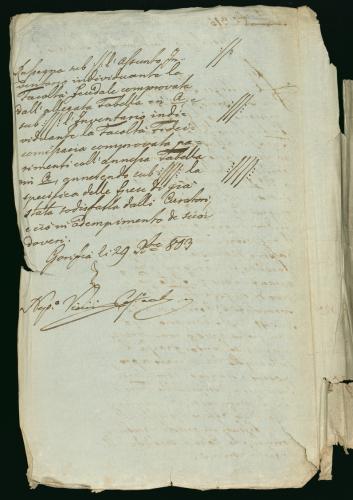 Rassegna sub ://: l'assunto In-
ventario individuante la
Facoltà feudale comprovata
dall'allegata Tabella in A, e
sub :///: l'Inventario indi-
viduante la Facoltà fidei-
comissaria comprovata pa-
rimenti coll'annessa Tabella
in B, annetendo sub ://///: la
specifica delle spese di già
state sodisfatte dalli Curatori,
e ciò in adempimento de suoi
doveri.
Gorizia li 29 Xbre 803
://:
:///:
://///: